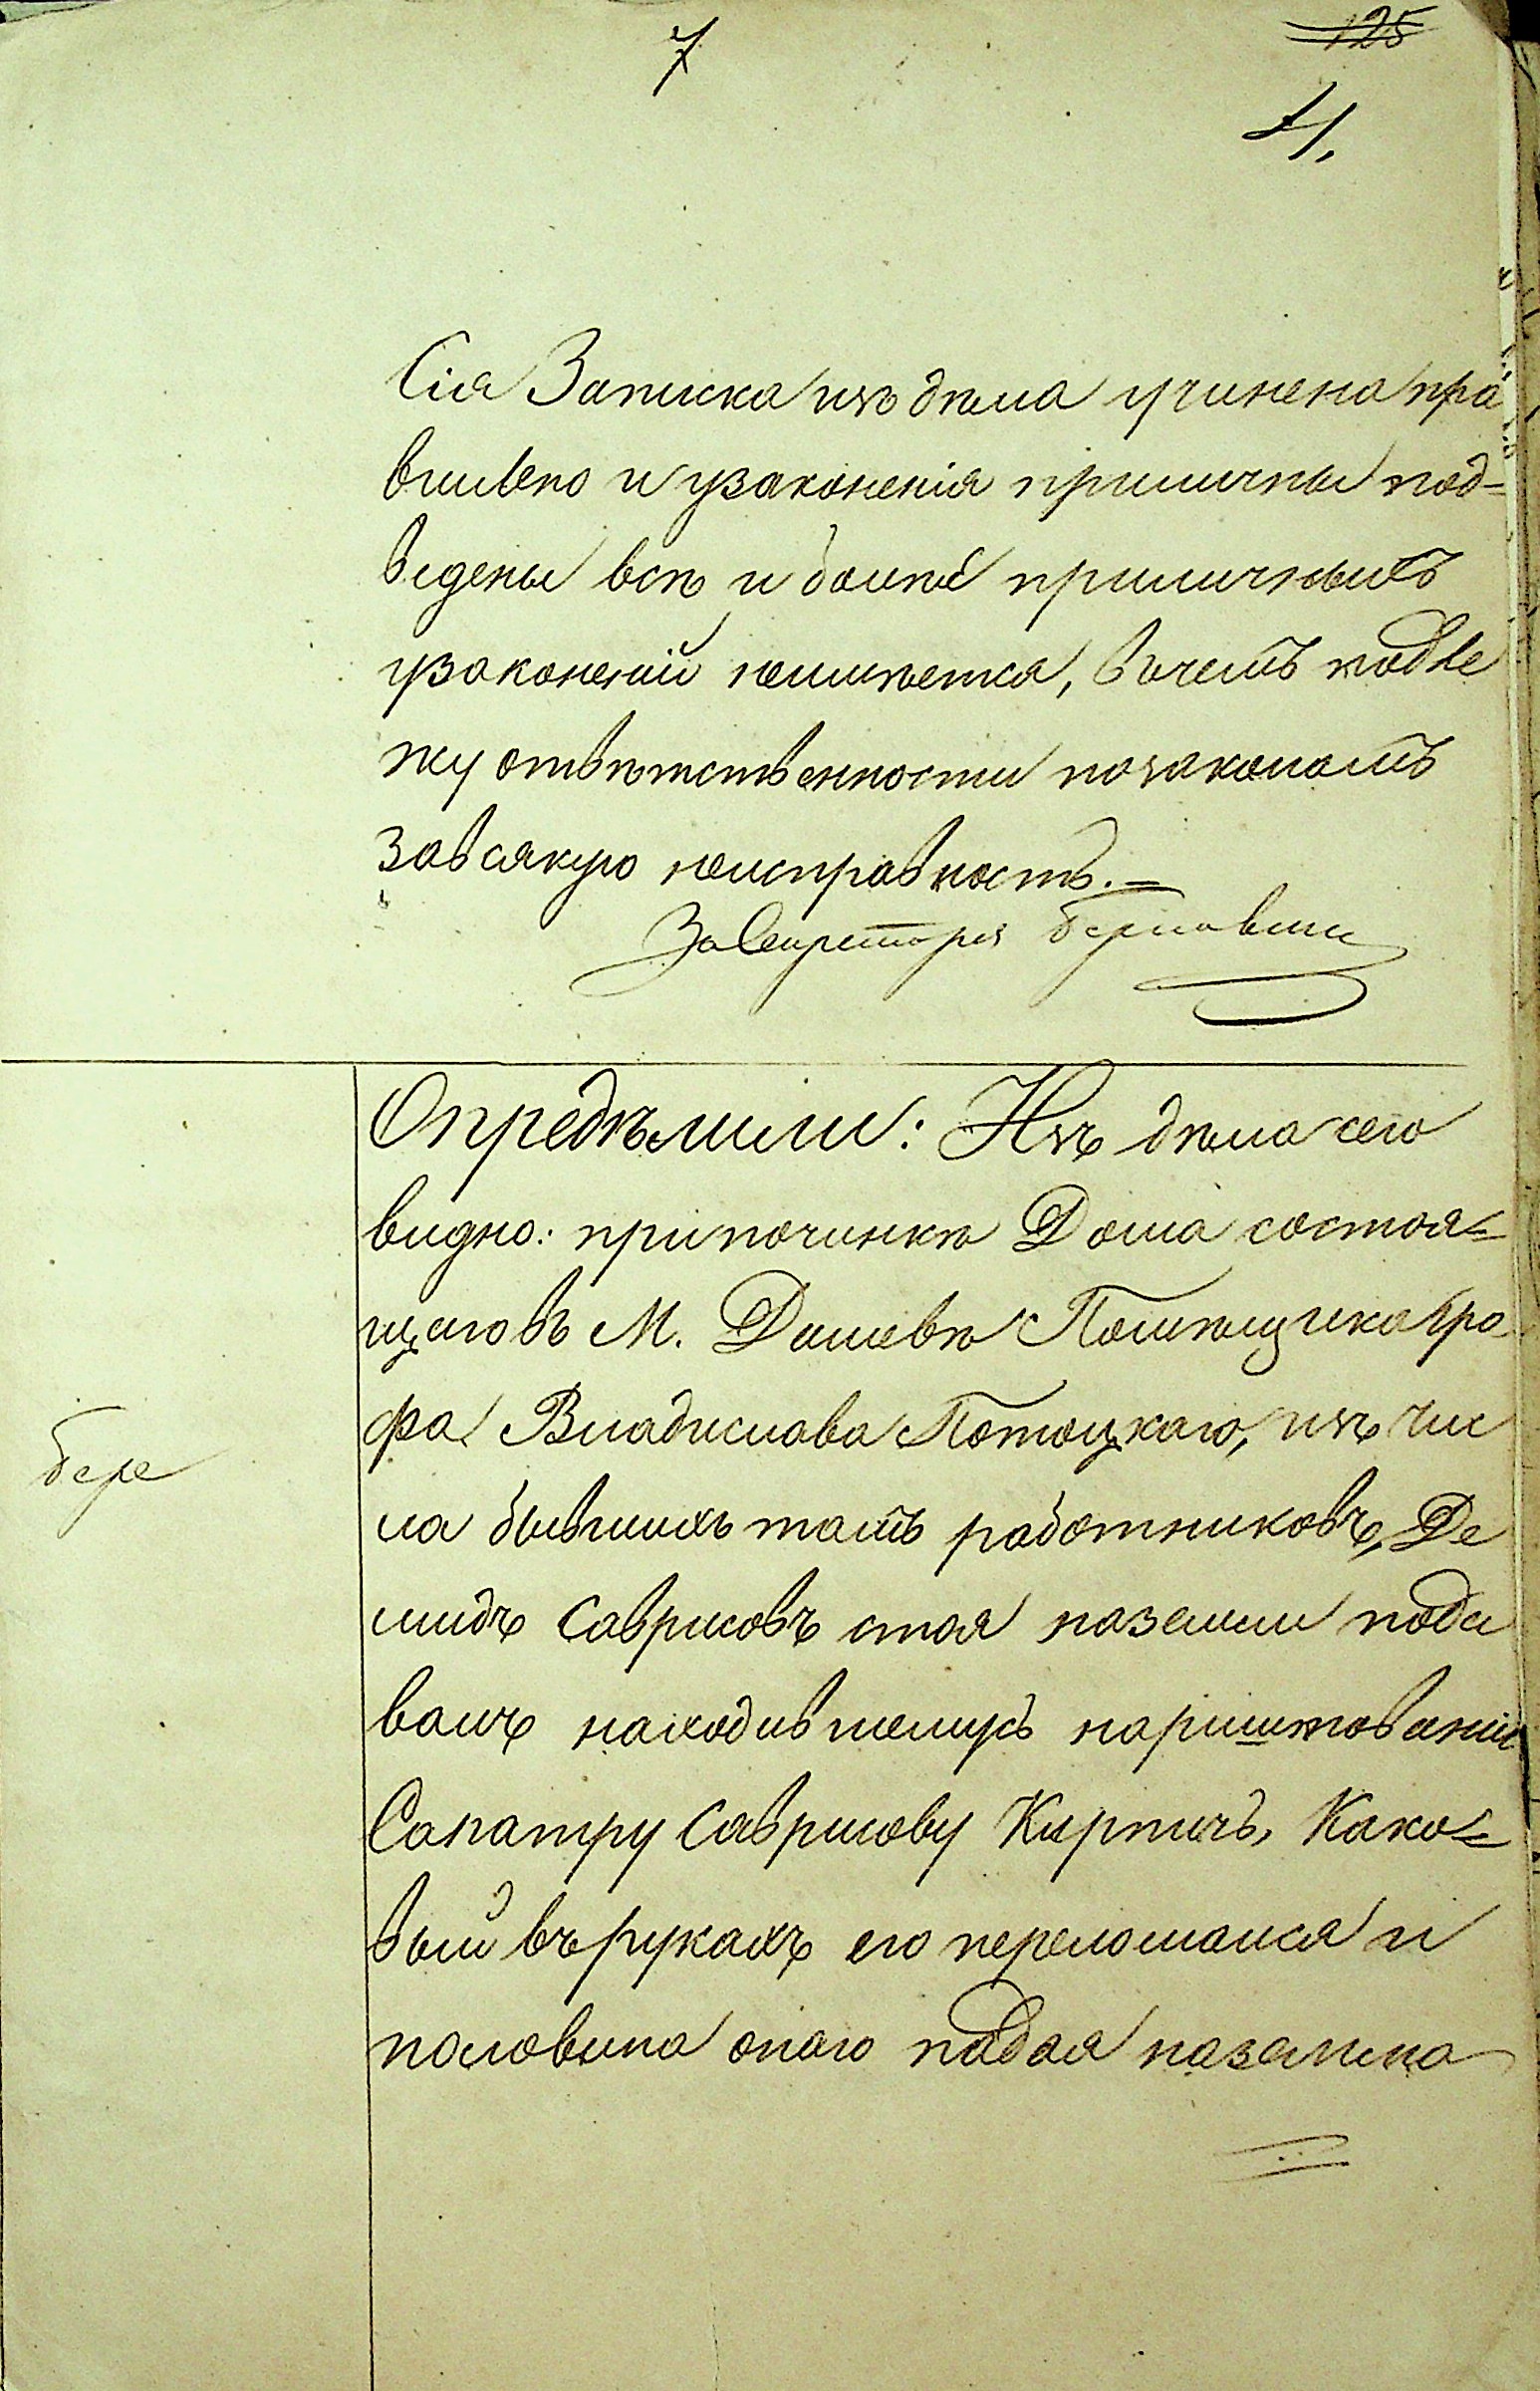 7
125
4.
Сія Записка изъ дѣла учинена пра
вильно и узаконенія приличныя под-
ведены всѣ и болѣе приличныхъ
узаконеній неимѣется, вчемъ подле
жу отвѣтственности позаконамъ
завсякую неисправность.—
За Секретаря
Опредѣлили: Изъ дѣла сего
видно: при починкѣ Дома состоя=
щаго въ М. Дашевѣ Помѣщика Гра
фа Владислава Потоцкаго, изъ чис
ла бывшихъ тамъ работниковъ, Де
мидъ Гаврисовъ стоя наземли пода
валъ находившемусь нариштованіи
Сопатру Гаврисову Кирпичъ, Како=
вый въ рукахъ его переломался и
половина онаго падая наземлю
бере